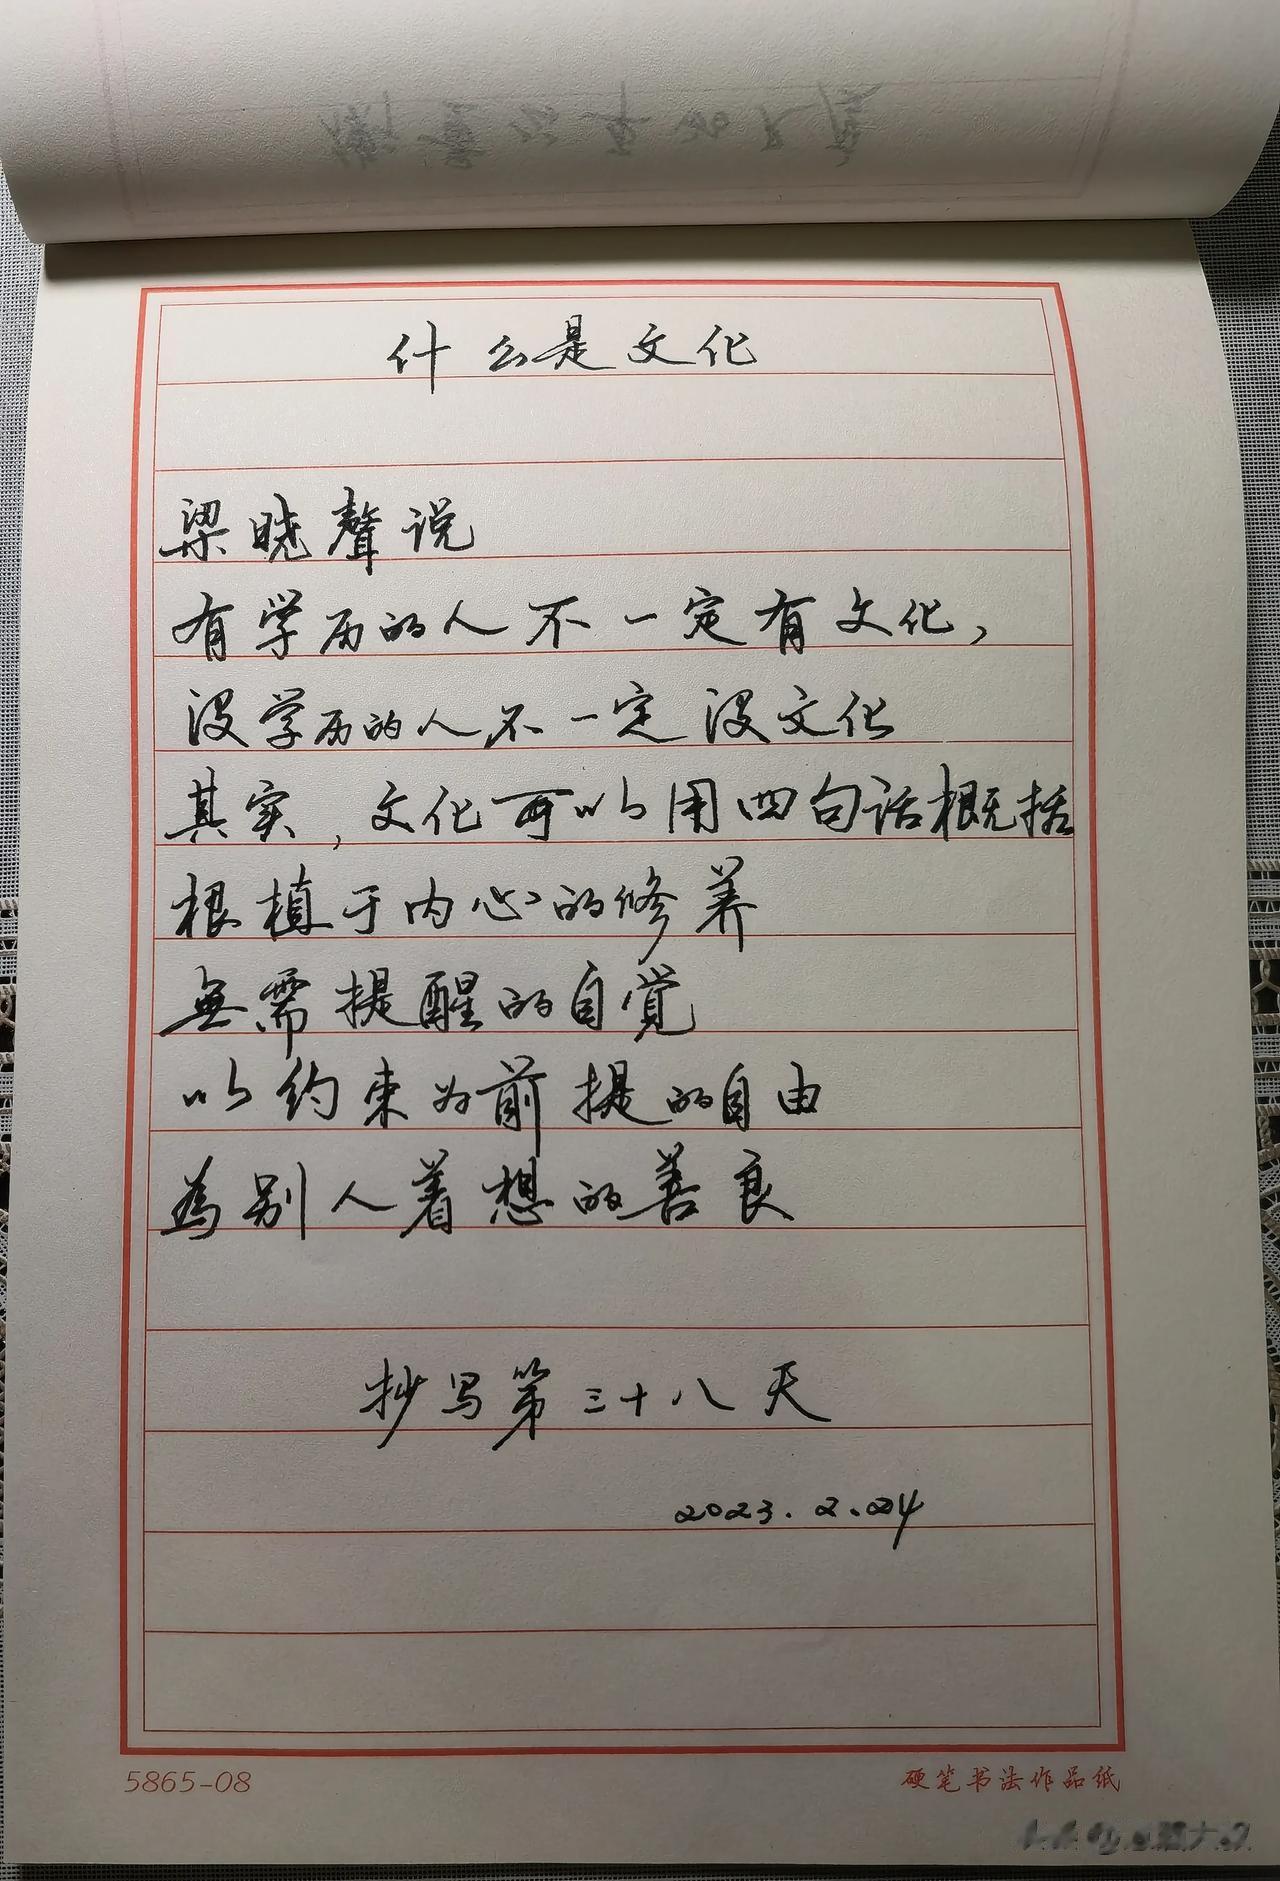 什么是文化
梁晓聲说
有学历的人不一定有文化,
没学历的人不一定没文化
其实,文化可以用四句话概括
根植于内心的修养
無需提醒的自覚
以约束为前提的自由
為别人着想的善良
抄写第三十八天
2023.2.24
5865-08
硬笔书法作品纸